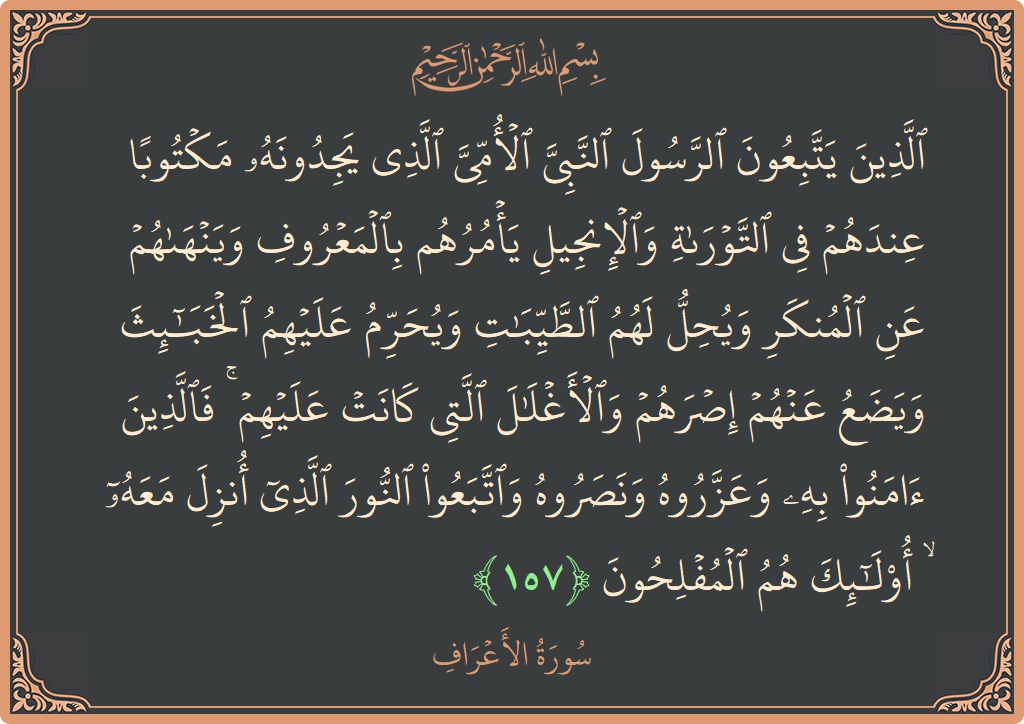 بِسْمِ اللَّهِ الرَّحْمَٰنِ الرَّحِيمِ
ٱلَّذِينَ يَتَّبِعُونَ ٱلرَّسُولَ ٱلنَّبِىَّ ٱلْأُمِّىَّ ٱلَّذِى يَجِدُونَهُۥ مَكْتُوبًا
عِندَهُمْ فِى ٱلتَّوْرَىٰةِ وَٱلْإِنجِيلِ يَأْمُرُهُم بِٱلْمَعْرُوفِ وَيَنْهَىٰهُمْ
عَنِ ٱلْمُنكَرِ وَيُحِلُّ لَهُمُ ٱلطَّيِّبَٰتِ وَيُحَرِّمُ عَلَيْهِمُ ٱلْخَبَٰٓئِثَ
وَيَضَعُ عَنْهُمْ إِصْرَهُمْ وَٱلْأَغْلَٰلَ ٱلَّتِى كَانَتْ عَلَيْهِمْ ۚ فَٱلَّذِينَ
ءَامَنُوا۟ بِهِۦ وَعَزَّرُوهُ وَنَصَرُوهُ وَٱتَّبَعُوا۟ ٱلنُّورَ ٱلَّذِىٓ أُنزِلَ مَعَهُۥٓ
ۙ أُو۟لَٰٓئِكَ هُمُ ٱلْمُفْلِحُونَ ﴿١٥٧﴾
سُورَةُ الأَعْرَافِ